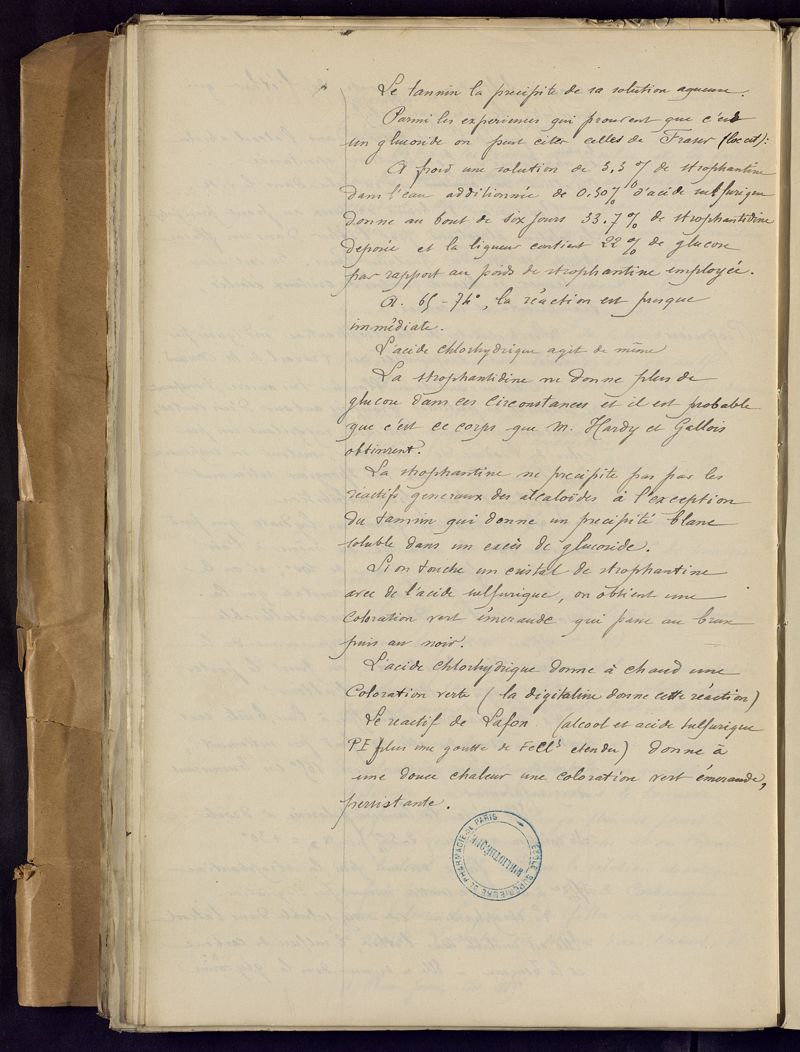 Le tannin la precipite de sa solution aqueuse.
Parmi les experiences qui prouvent que c'est
un glucoside on peut citer celles de Fraser (loc cit):
A froid une solution de 3,3 % de strophantine
dans l'eau additionnée de 0.50% d'acide sulfurique
donne au bout de six jours 33.7 % de strophantidine
deposée et la liqueur contient 22 % de glucose
par rapport au poids de strophantine employée.
A. 65 - 74°, la réaction est presque
immédiate.
L'acide chlorhydrique agit de même
La strophantidine ne donne plus de
glucose dans ces circonstances et il est probable
que c'est ce corps que M. Hardy et Gallois
obtinrent.
La strophantine ne precipite pas par les
réactifs generaux des alcaloïdes à l'exception
du tannin qui donne un precipité blanc
soluble dans un excès de glucoside.
Si on touche un cristal de strophantine
avec de l'acide sulfurique, on obtient une
coloration vert émeraude qui passe au brun
puis au noir.
L'acide chlorhydrique donne à chaud une
coloration verte (la digitaline donne cette réaction)
Le reactif de Lafon (alcool et acide sulfurique
P.E plus une goutte de FeCl³ etendu) donne à
une douce chaleur une coloration vert émeraude,
persistante.
ÉCOLE SUPÉRIEURE DE PHARMACIE DE PARIS
BIBLIOTHÈQUE